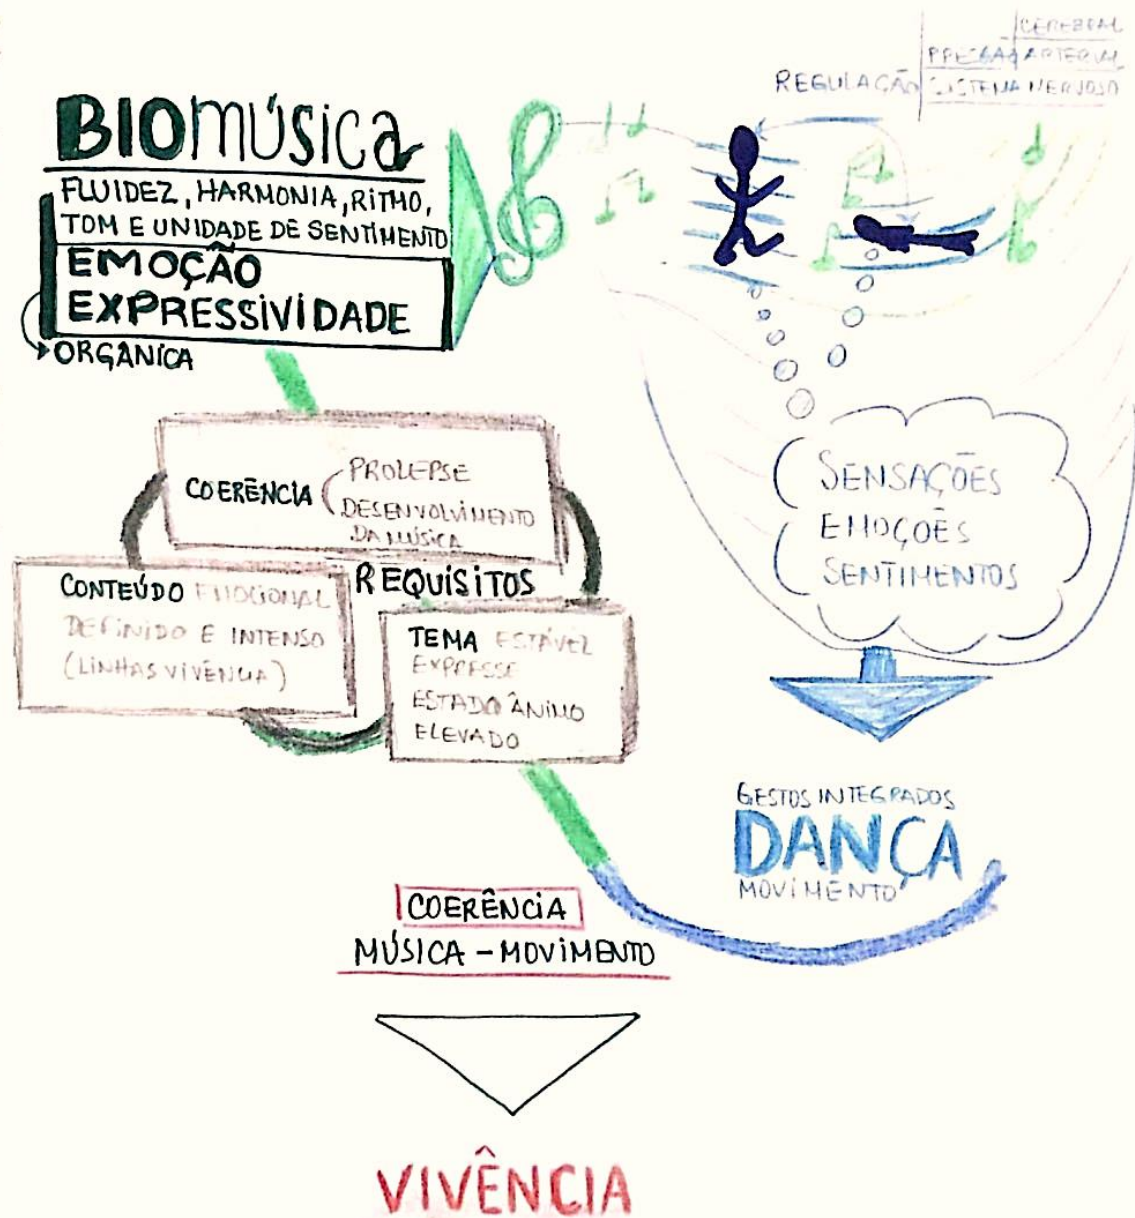 BIOMÚSICA
FLUIDEZ, HARMONIA, RITMO,
TOM E UNIDADE DE SENTIMENTO
EMOÇÃO
EXPRESSIVIDADE
ORGÂNICA
REGULAÇÃO
CEREBRAL
PRESSÃO ARTERIAL
SISTEMA NERVOSO
COERÊNCIA
PROLEPSE
DESENVOLVIMENTO
DA MÚSICA
REQUISITOS
CONTEÚDO EMOCIONAL
DEFINIDO E INTENSO
(LINHAS VIVÊNCIA)
TEMA ESTÁVEL
EXPRESSE
ESTADO ÂNIMO
ELEVADO
SENSAÇÕES
EMOÇÕES
SENTIMENTOS
GESTOS INTEGRADOS
DANÇA
MOVIMENTO
COERÊNCIA
MÚSICA - MOVIMENTO
VIVÊNCIA